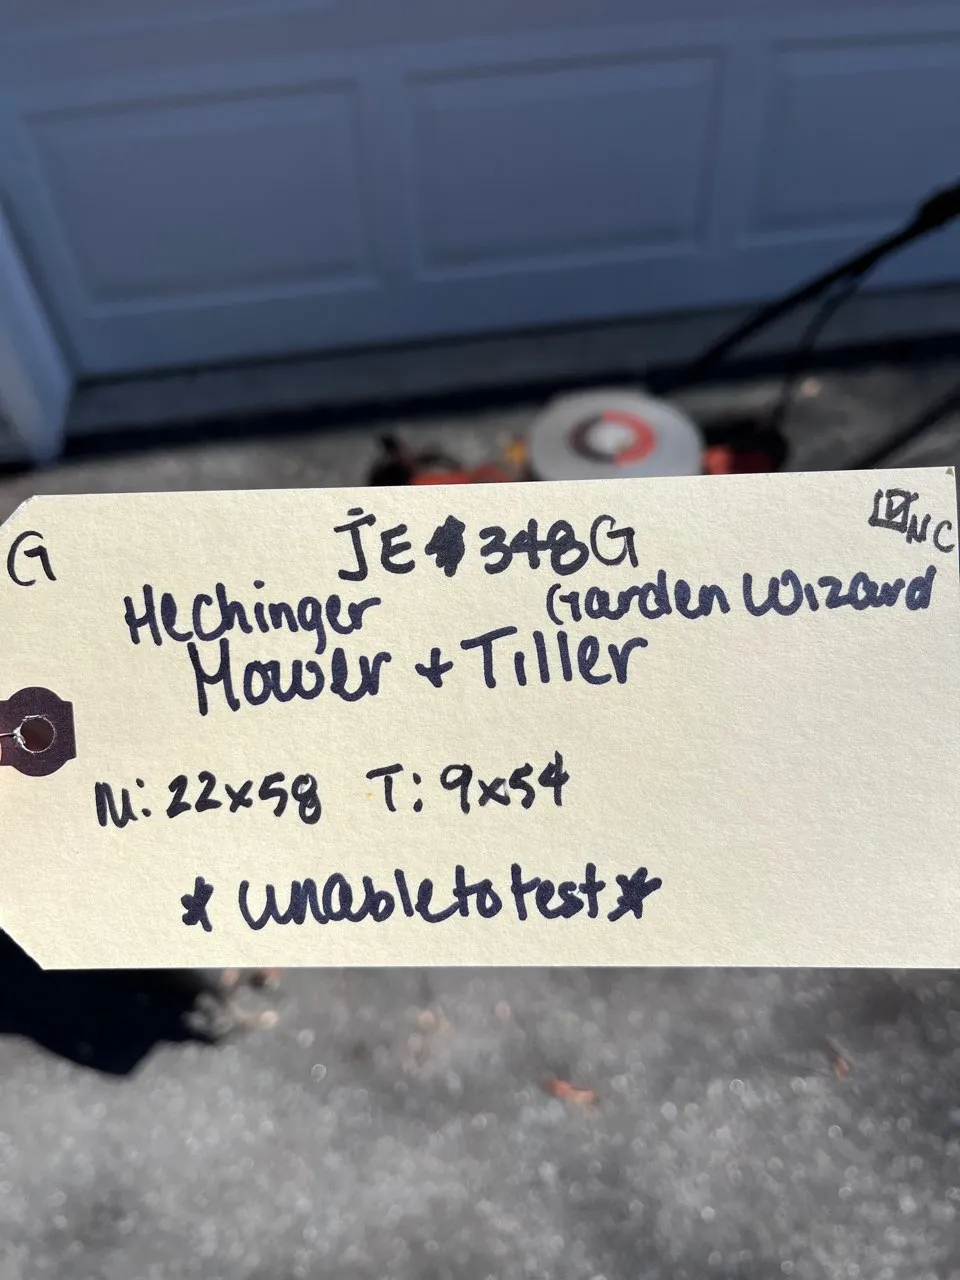 G
JE 348G
NC
Hechinger Garden Wizard
Mower + Tiller
M: 22x58 T: 9x54
* unable to test *